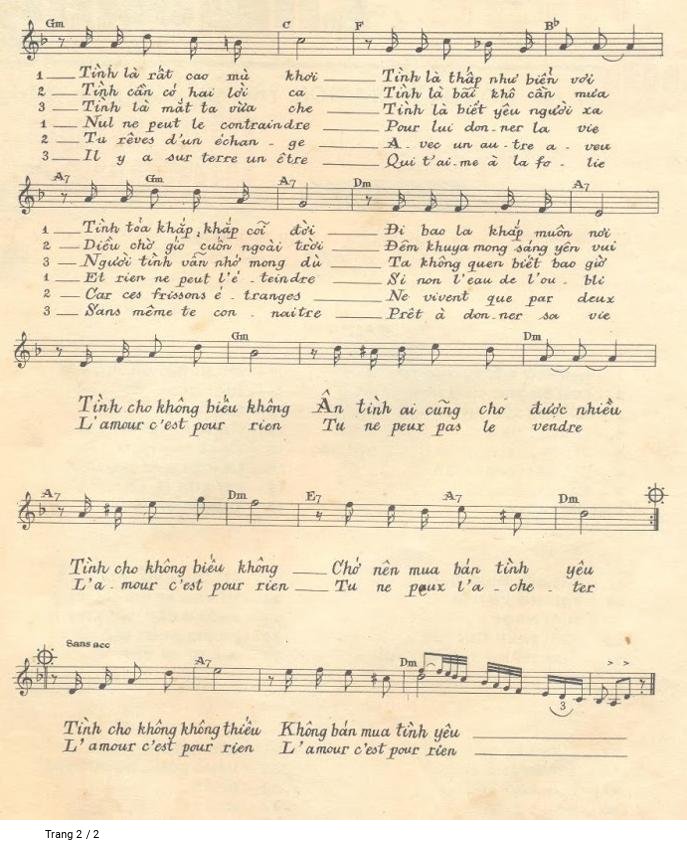 Gm C F Bb
1 ___ Tình là rất cao mù khơi ___ Tình là thấp như biển vơi
2 ___ Tình cần có hai lời ca ___ Tình là bãi khô cần mưa
3 ___ Tình là mắt ta vừa che ___ Tình là biết yêu người xa
1 ___ Nul ne peut le contraindre ___ Pour lui don-ner la vie
2 ___ Tu rêves d'un échan-ge ___ A-vec un au-tre a-veu
3 ___ Il y a sur terre un être ___ Qui t'ai-me à la fo-lie
A7 Gm A7 Dm A7
1 ___ Tình tỏa khắp, khắp cõi đời ___ Đi bao la khắp muôn nơi
2 ___ Diều chờ gió cuồn ngoài trời ___ Đêm khuya mong sáng yên vui
3 ___ Người tình vẫn nhớ mong dù ___ Ta không quen biết bao giờ
1 ___ Et rien ne peut l'é-teindre ___ Si non l'eau de l'ou-bli
2 ___ Car ces frissons é-tranges ___ Ne vivent que par deux
3 ___ Sans même te con-naitre ___ Prêt à don-ner sa vie
Gm Dm
Tình cho không biếu không Ân tình ai cũng cho được nhiều
L'amour c'est pour rien Tu ne peux pas le vendre
A7 Dm E7 A7 Dm
Tình cho không biếu không ___ Chớ nên mua bán tình yêu
L'a-mour c'est pour rien ___ Tu ne peux l'a-che-ter
Sans acc
A7 Dm
3
Tình cho không không thiếu Không bán mua tình yêu ___
L'amour c'est pour rien L'amour c'est pour rien ___
Trang 2 / 2